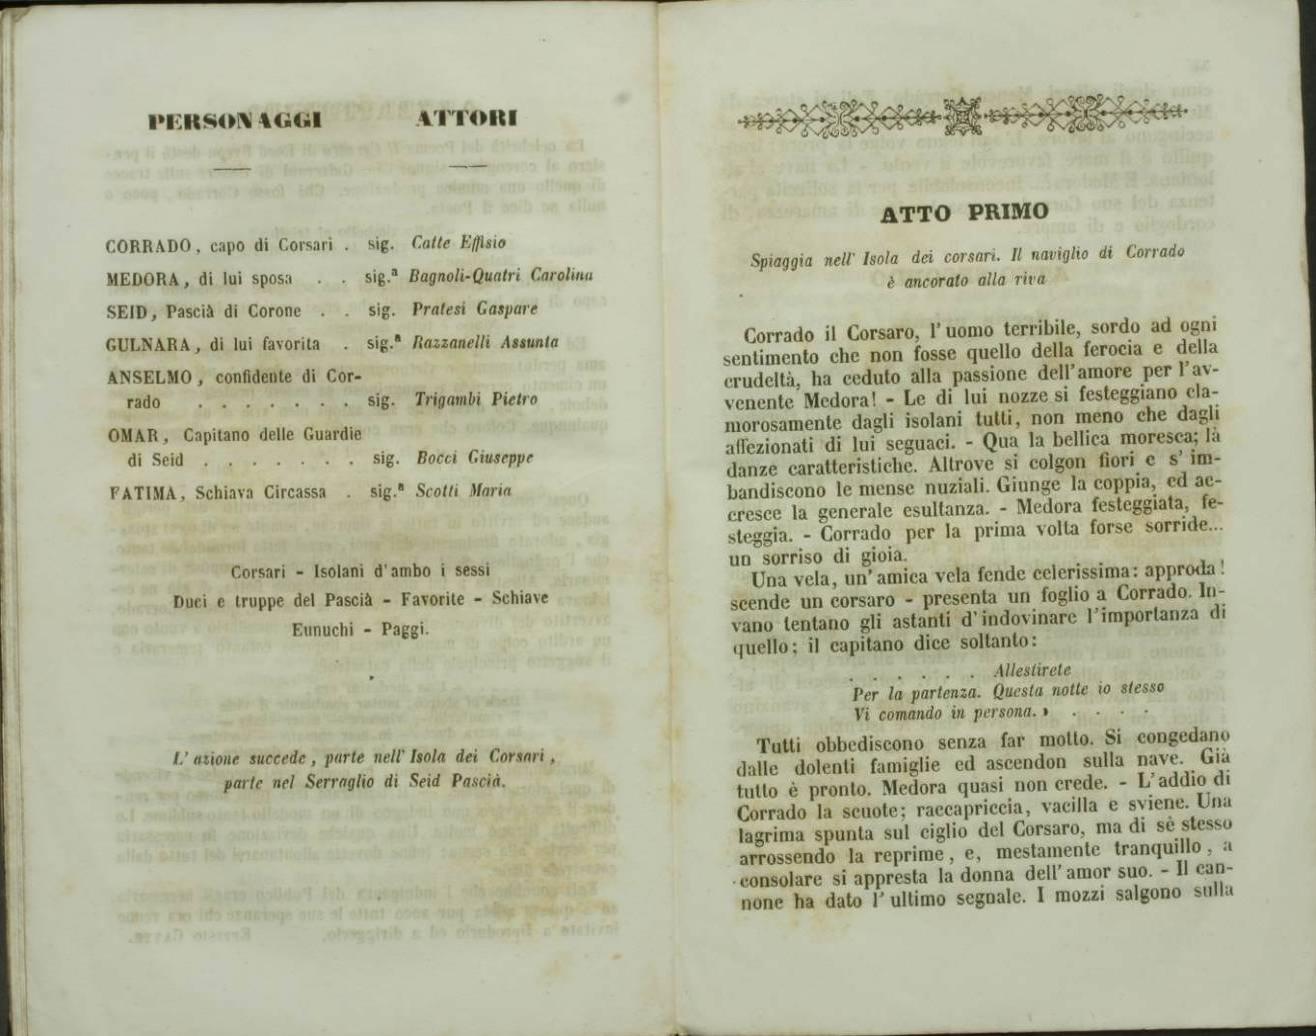 PERSONAGGI ATTORI
CORRADO, capo di Corsari . sig. Catte Effisio
MEDORA, di lui sposa . . sig.ª Bagnoli-Quatri Carolina
SEID, Pascià di Corone . . sig. Pratesi Gaspare
GULNARA, di lui favorita . sig.ª Razzanelli Assunta
ANSELMO, confidente di Cor-
rado . . . . . . . sig. Trigambi Pietro
OMAR, Capitano delle Guardie
di Seid . . . . . . . sig. Bocci Giuseppe
FATIMA, Schiava Circassa . sig.ª Scotti Maria
Corsari - Isolani d'ambo i sessi
Duci e truppe del Pascià - Favorite - Schiave
Eunuchi - Paggi.
L'azione succede, parte nell'Isola dei Corsari,
parte nel Serraglio di Seid Pascià.
ATTO PRIMO
Spiaggia nell'Isola dei corsari. Il naviglio di Corrado
è ancorato alla riva
Corrado il Corsaro, l'uomo terribile, sordo ad ogni
sentimento che non fosse quello della ferocia e della
crudeltà, ha ceduto alla passione dell'amore per l'av-
venente Medora! - Le di lui nozze si festeggiano cla-
morosamente dagli isolani tutti, non meno che dagli
affezionati di lui seguaci. - Qua la bellica moresca; là
danze caratteristiche. Altrove si colgon fiori e s'im-
bandiscono le mense nuziali. Giunge la coppia, ed ac-
cresce la generale esultanza. - Medora festeggiata, fe-
steggia. - Corrado per la prima volta forse sorride...
un sorriso di gioia.
Una vela, un'amica vela fende celerissima: approda!
scende un corsaro - presenta un foglio a Corrado. In-
vano tentano gli astanti d'indovinare l'importanza di
quello; il capitano dice soltanto:
. . . . . . Allestirete
Per la partenza. Questa notte io stesso
Vi comando in persona. » . . . .
Tutti obbediscono senza far motto. Si congedano
dalle dolenti famiglie ed ascendon sulla nave. Già
tutto è pronto. Medora quasi non crede. - L'addio di
Corrado la scuote; raccapriccia, vacilla e sviene. Una
lagrima spunta sul ciglio del Corsaro, ma di sè stesso
arrossendo la reprime, e, mestamente tranquillo, a
consolare si appresta la donna dell'amor suo. - Il can-
none ha dato l'ultimo segnale. I mozzi salgono sulla